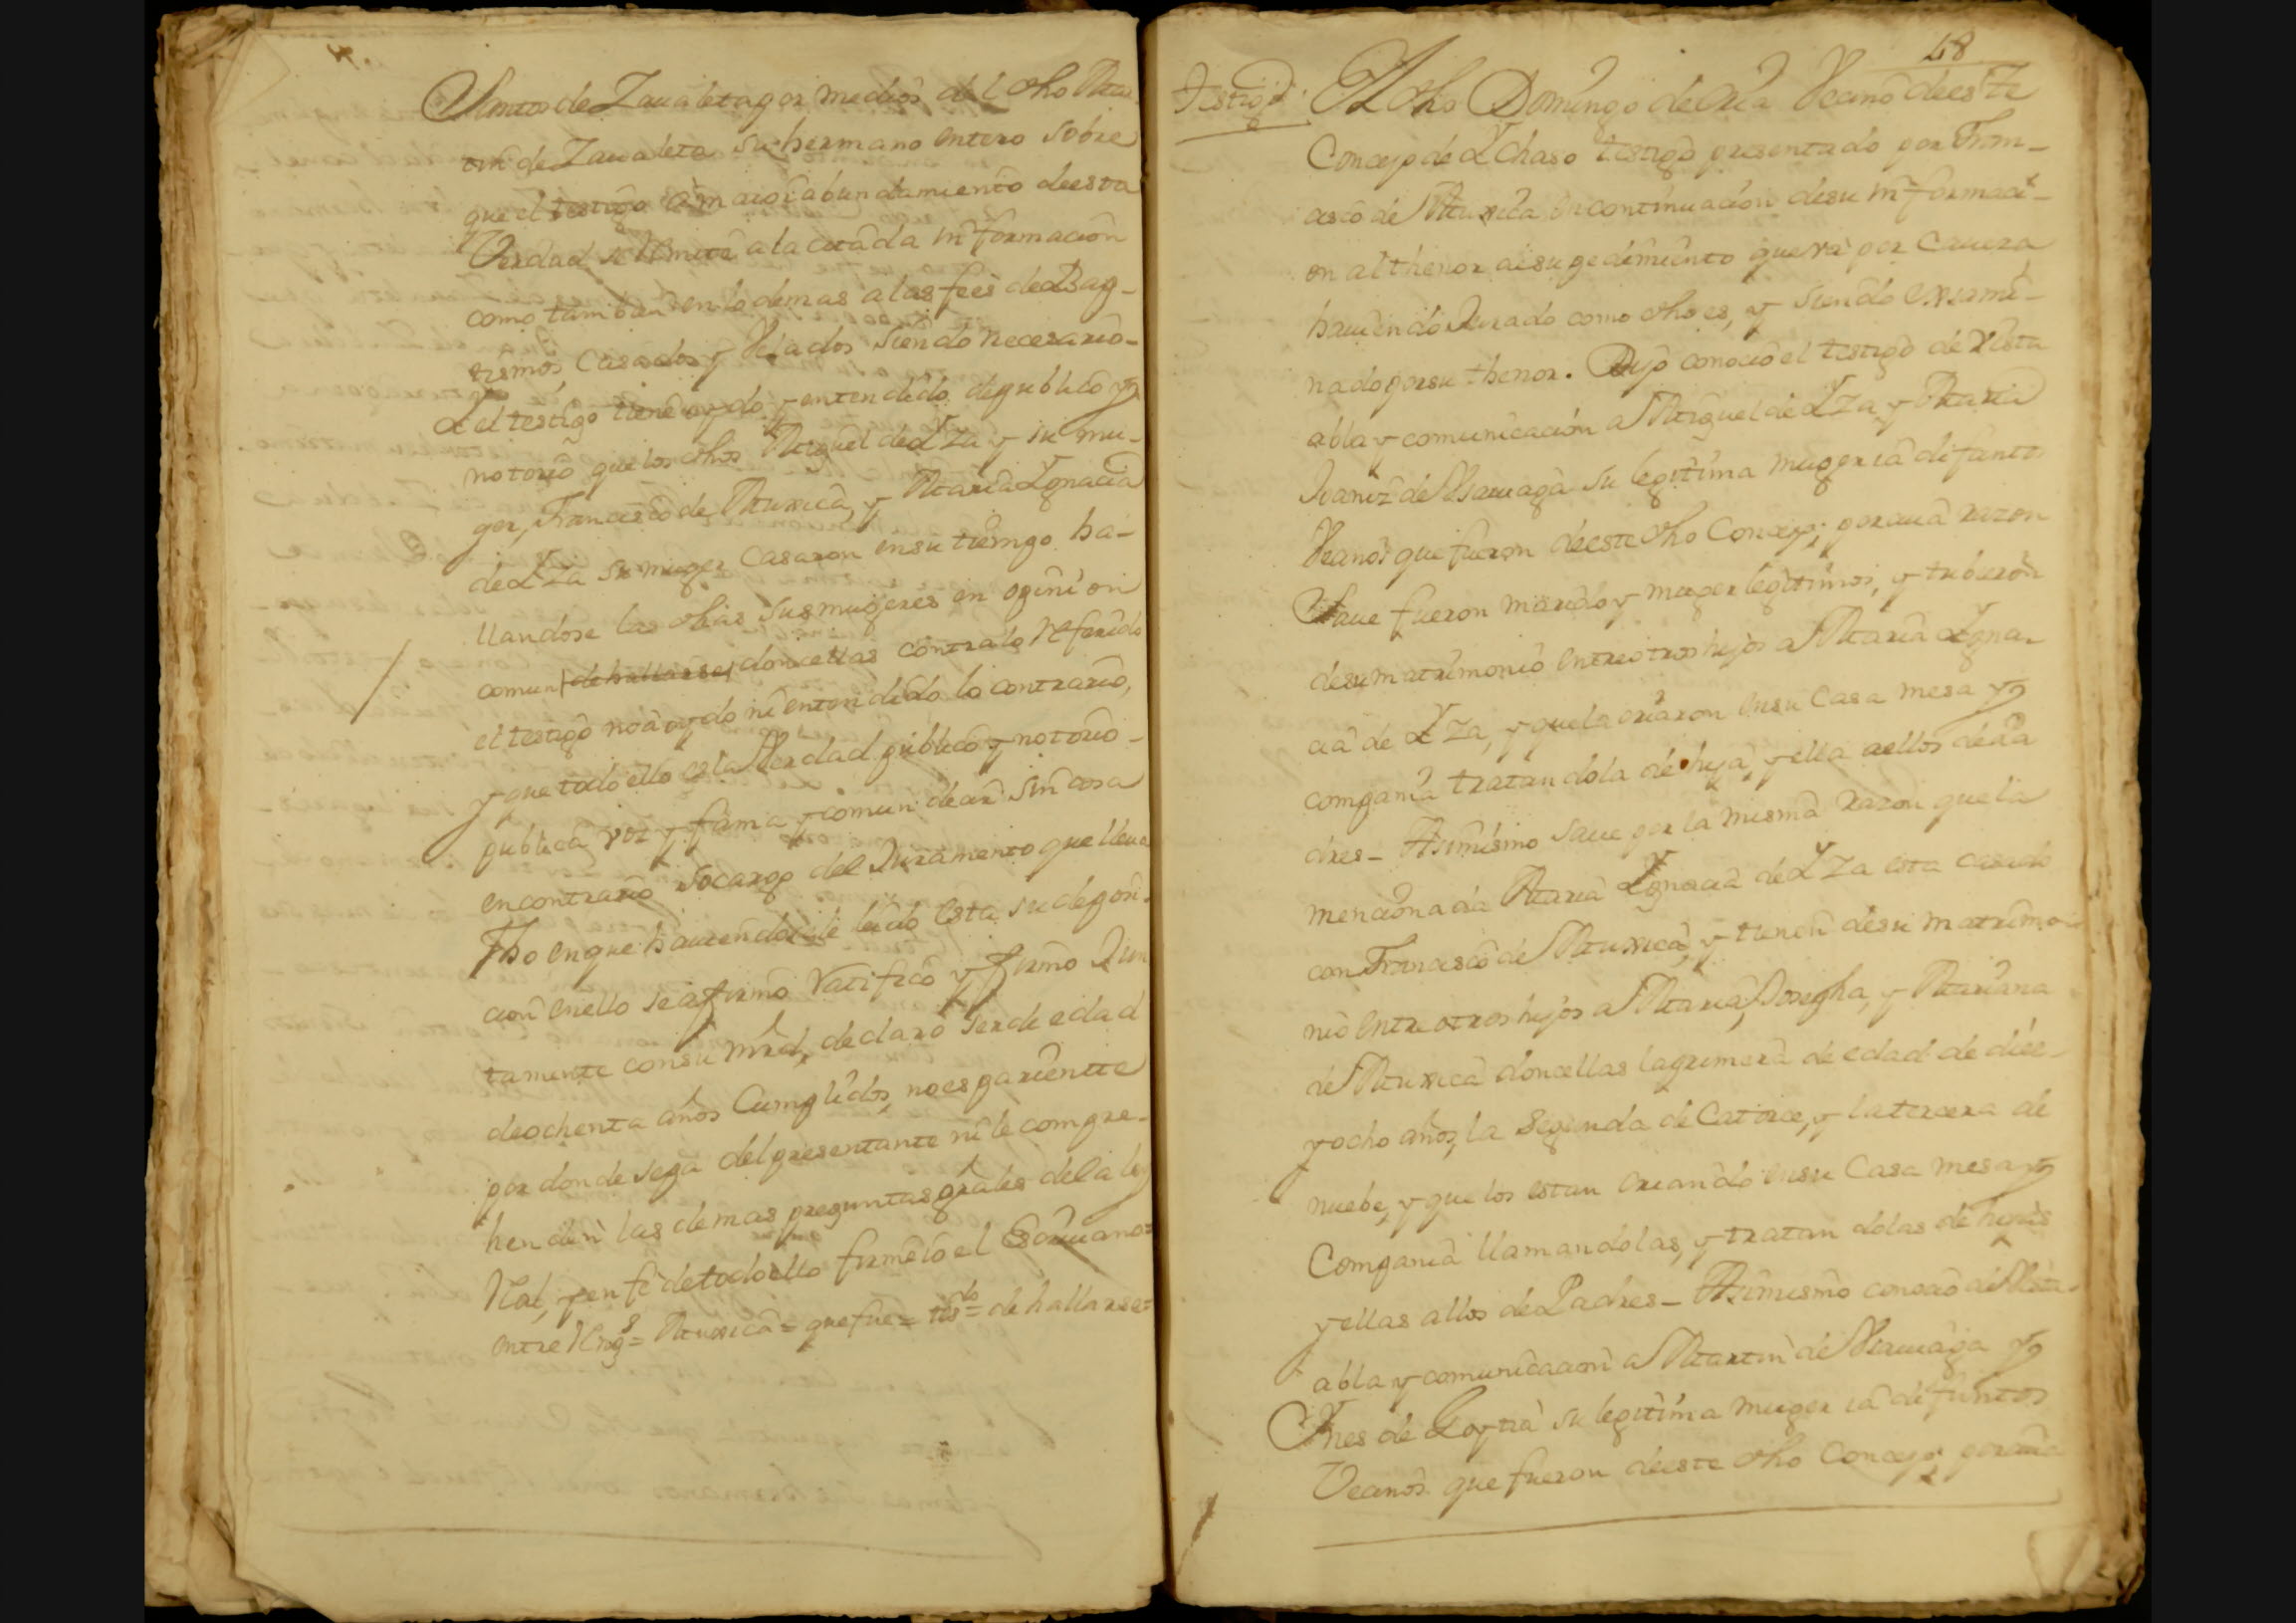 Santos de Zaualeta por medios del dho Mar-
tin de Zaualeta su hermano entero sobre
que el testigo à maior abundamiento de esta
Verdad se Remite a la citada informacion
como tambien en lo demas a las fees de Bap-
tismos Casados y Velados siendo necesario-
Y el testigo tiene oydo, y entendido de publico y
notorio que los dhos Miguel de Yza y su mu-
ger, Francisco de Muxica, y Maria Ygnacia
de Yza su muger Casaron en su tiempo ha-
llandose las dhas sus mugeres en opinion
comun de hallarse doncellas contra lo referido
el testigo no à oydo ni entendido lo contrario,
y que todo ello es la Verdad publico y notorio-
publica voz y fama y comun decir sin cosa
en contrario socargo del Juramento que lleua
fho en que hauiendosele leido esta su deposi-
cion en ello se afirmò ratificò y firmò Jun
tamente con su mrd, declarò ser de edad
de ochenta años Cumplidos, no es pariente
por donde sepa del presentante ni le compre-
henden las demas preguntas grales de la ley
Real, y en fè de todo ello firmè Yo el Escriuano=
entre Rengs= Muxica= que fue= tdo= de hallarse=
48
Testigo
El dho Domingo de Vecino de este
Concejo de Ychaso testigo presentado por Fran-
cisco de Muxica en continuacion de su informaci-
on al thenor de su pedimiento que và por Caueza
hauiendo Jurado como dho es, y siendo exsami-
nado por su thenor. Dijo conociò el testigo de vista
abla y comunicacion a Miguel de Yza y Maria
Juaniz de Baruaga su legitima muger ià difuntos
Vecinos que fueron de este dho Concejo; por cuia razon
Saue fueron marido y muger legitimos, y tubieron
de su matrimonio entre otros hijos a Maria Ygna-
cia de Yza, y que la criaron en su Casa mesa y
compania tratandola de hija, y ella a ellos de Pa
dres- Asimismo saue por la misma razon que la
mencionada Maria Ygnacia de Yza esta casada
con Francisco de Muxica, y tienen de su matrimo-
nio entre otros hijos a Maria, Josepha, y Mariana
de Muxica doncellas la primera de edad de diez
y ocho años, la segunda de Catorce, y la tercera de
nuebe, y que los estan criando en su Casa mesa y
Compania llamandolas, y tratandolas de hijas
y ellas a llos de Padres- Asimismo conociò de Vista
abla y comunicacion a Martin de Beruaga y
Ynes de Goytia su legitima muger ià difuntos
Vecinos que fueron de este dho Concejo por cuia